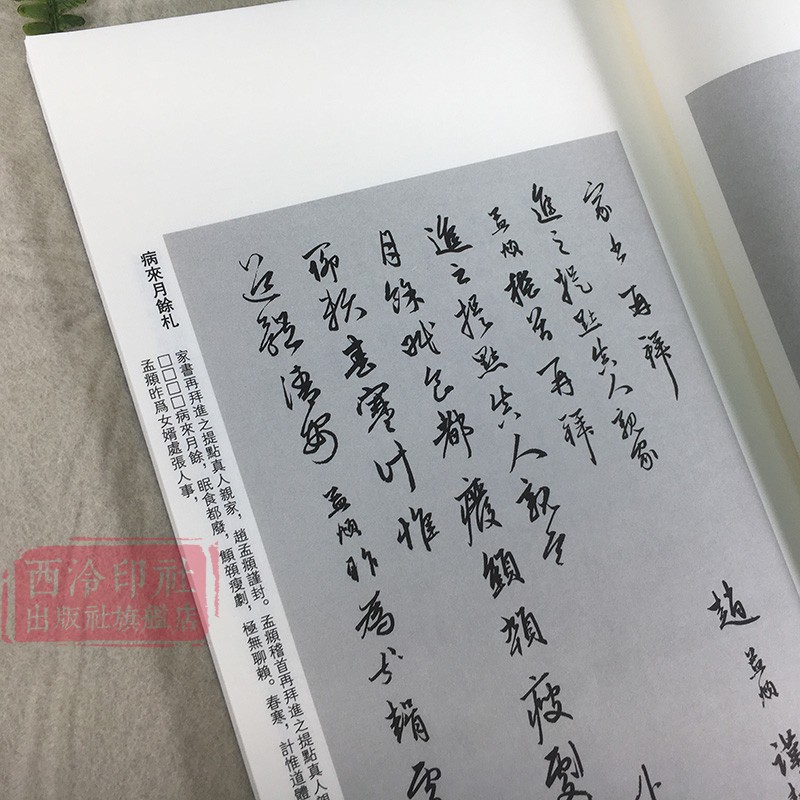 家書再拜
進之提點真人親家
趙孟頫謹
孟頫稽首再拜
進之提點真人親家
月餘眠食都廢顦顇瘦劇
聊賴春寒計惟
道體清安孟頫昨為女婿處
病來月餘札
家書再拜進之提點真人親家，趙孟頫謹封。孟頫稽首再拜進之提點真人親
□□□□病來月餘，眠食都廢，顦顇瘦劇，極無聊賴。春寒，計惟道體
孟頫昨爲女婿處張人事，
西泠印社
出版社旗艦店